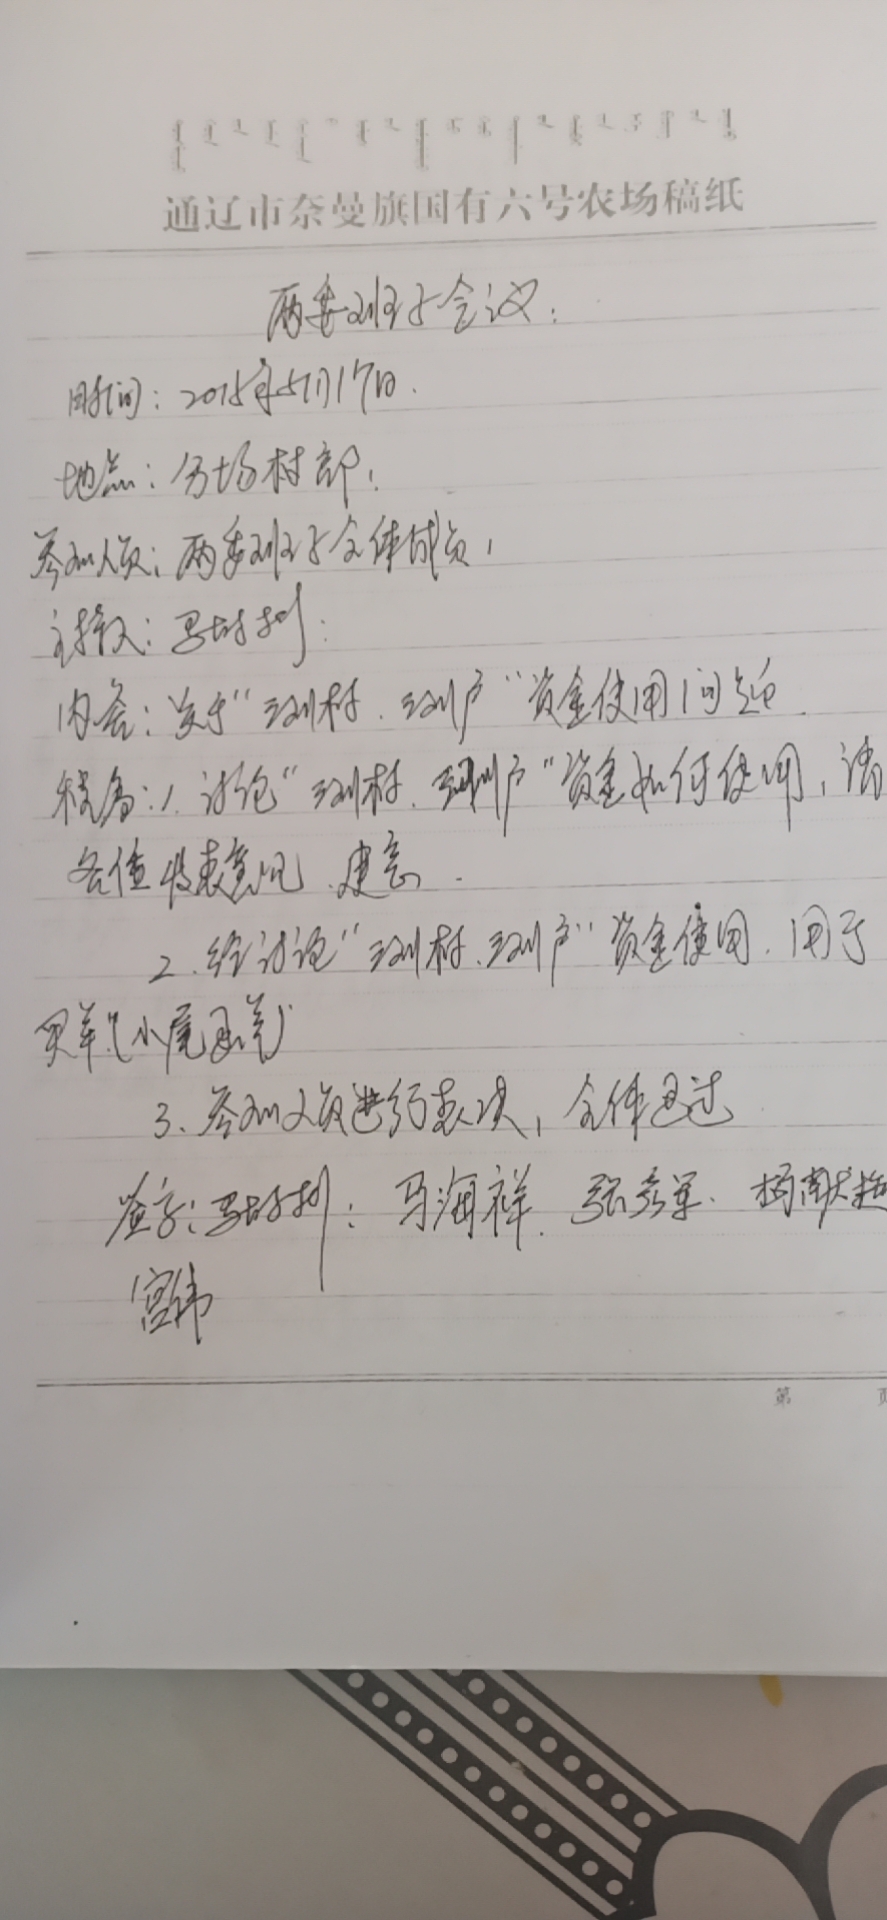 通辽市奈曼旗国有六号农场稿纸
两委班子会议:
时间:2015年5月17日.
地点:分场村部,
参加人员:两委班子全体成员,
主持人:
内容:关于"三到村.三到户"资金使用问题.
1.讨论"三到村.三到户"资金如何使用,请
各位发表意见.建意.
2.经讨论"三到村.三到户"资金使用.用于
买羊"(小尾寒羊)
3、参加人员进行表决,全体通过
签字: 马海祥. 杨献
宫伟
第 页